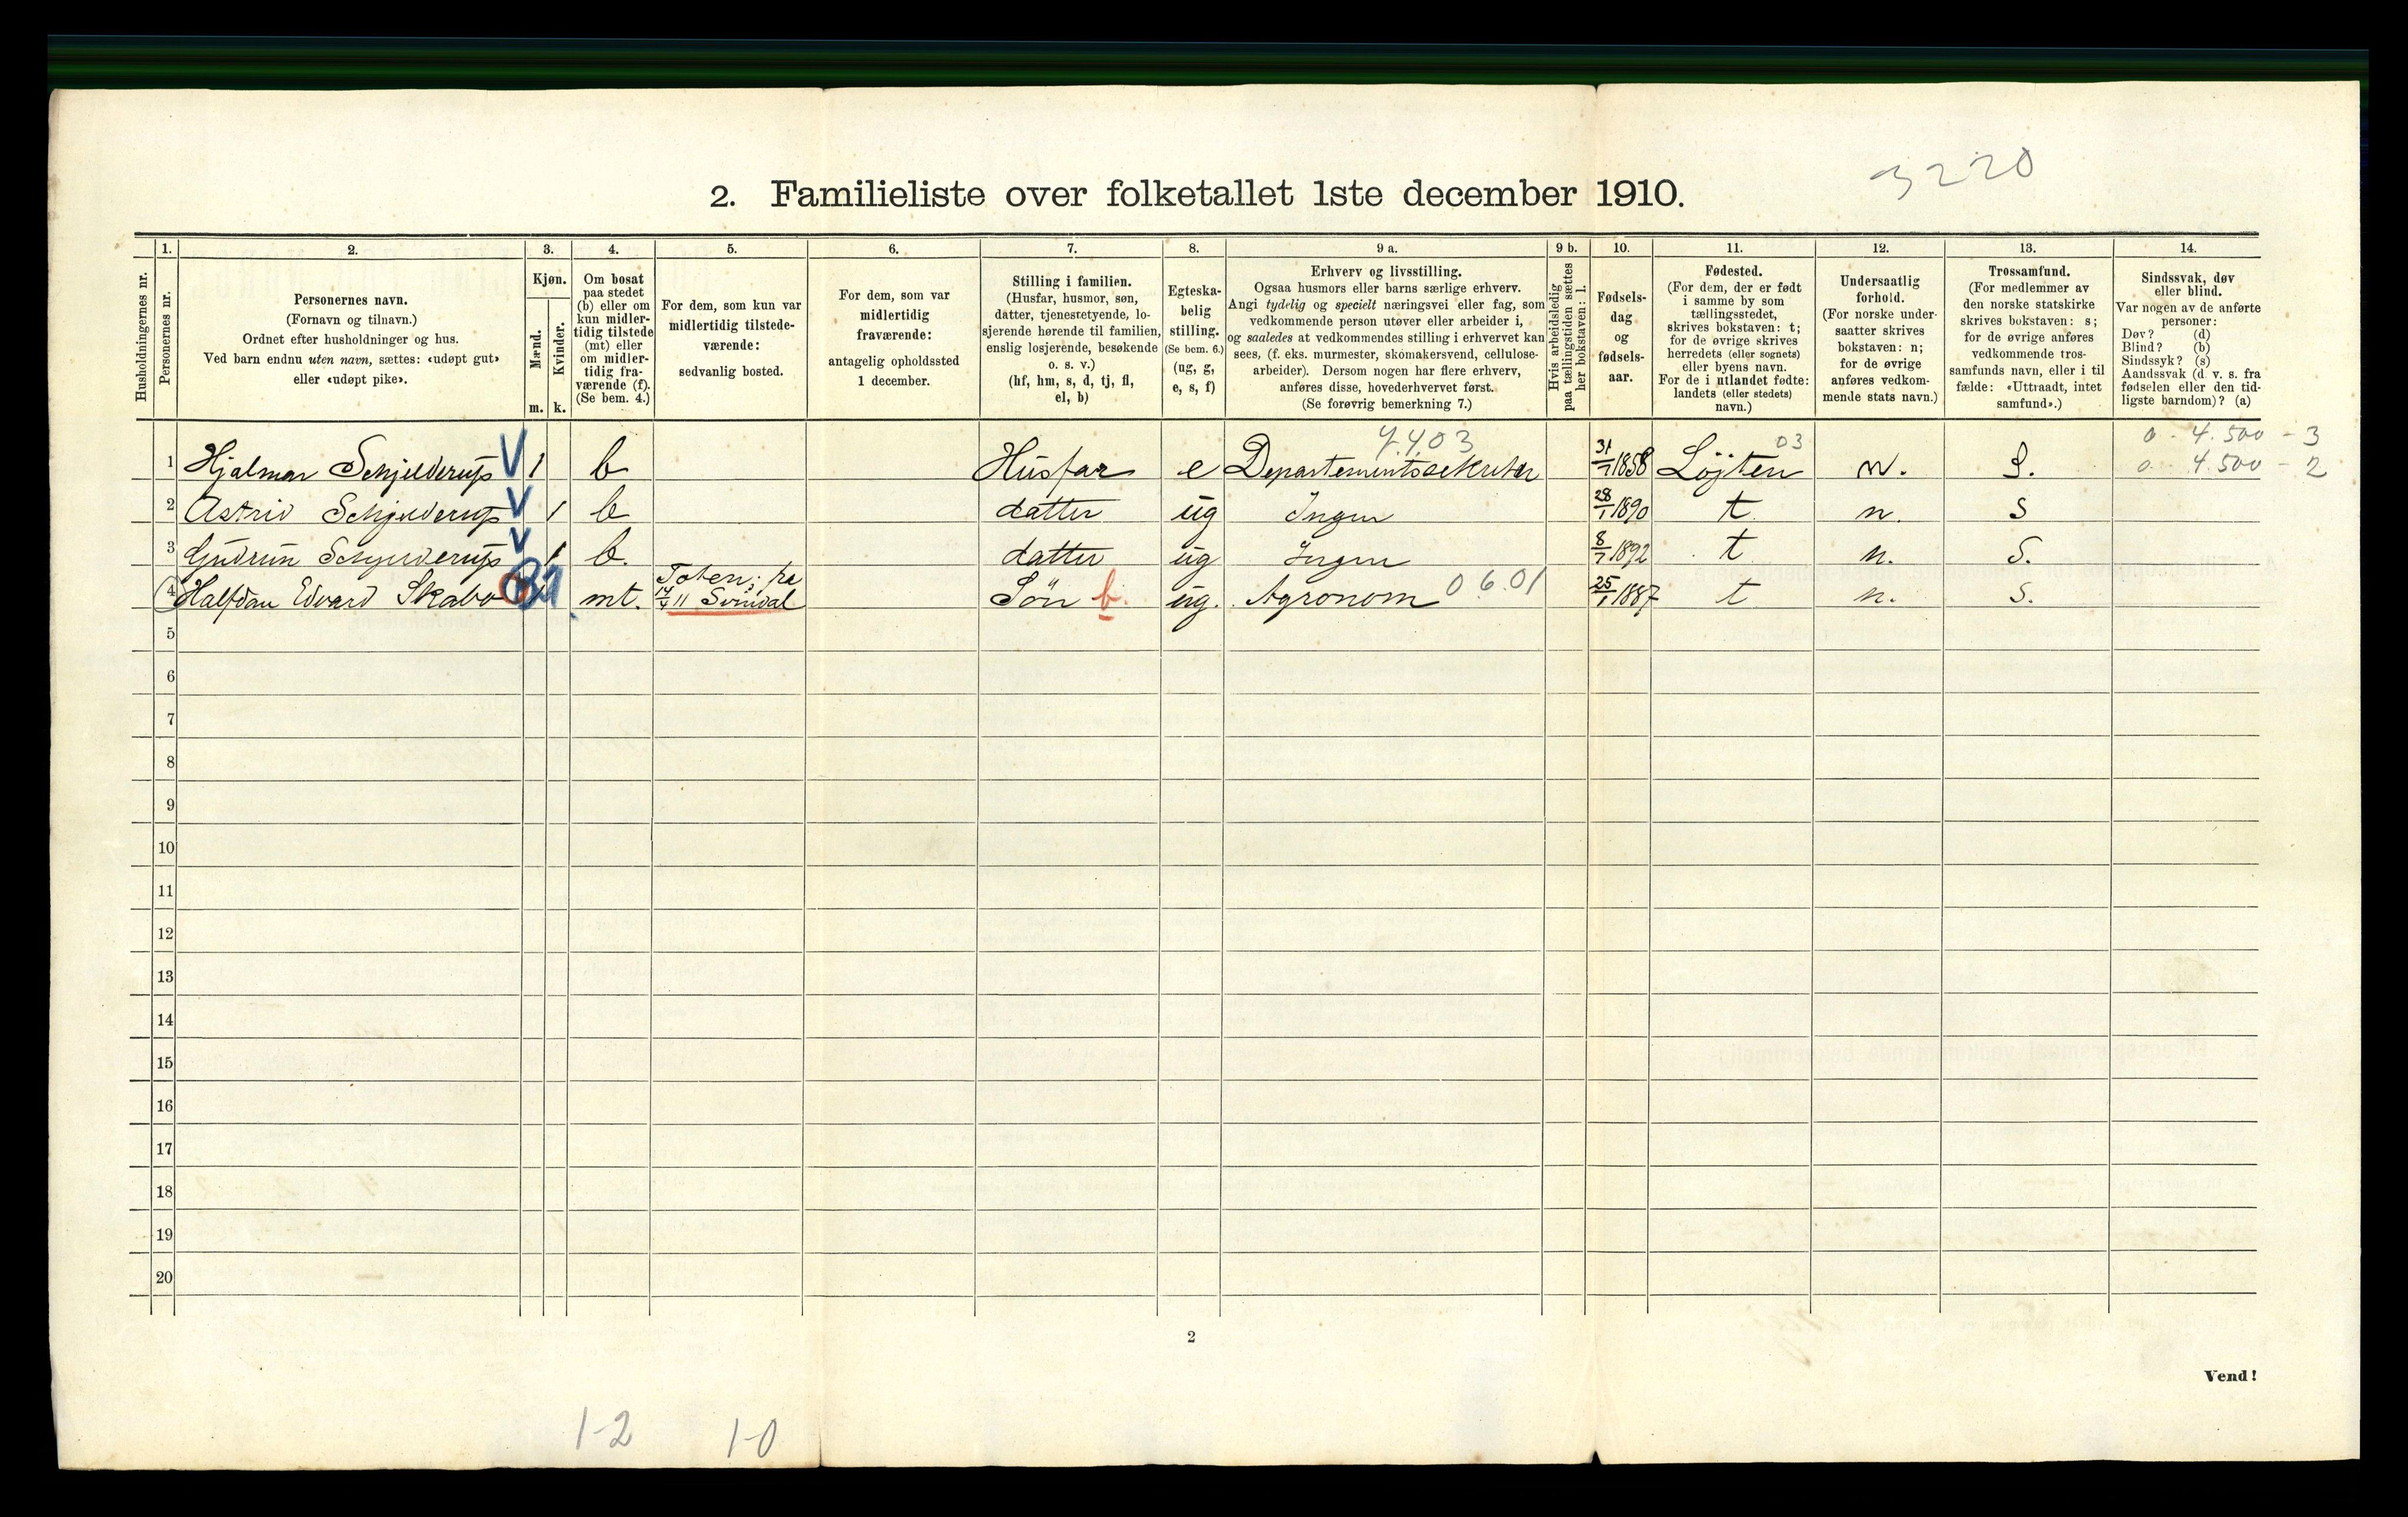 3220
2. Familieliste over folketallet 1ste december 1910.
Husholdningernes nr.
1.
Personernes nr.
2.
Personernes navn.
(Fornavn og tilnavn.)
Ordnet efter husholdninger og hus.
Ved barn endnu uten navn, sættes: «udøpt gut»
eller «udøpt pike».
3.
Kjøn.
Mænd.
m.
Kvinder.
k.
4.
Om bosat
paa stedet
(b) eller om
kun midler-
tidig tilstede
(mt) eller
om midler-
tidig fra-
værende (f).
(Se bem. 4.)
5.
For dem, som kun var
midlertidig tilstede-
værende:
sedvanlig bosted.
6.
For dem, som var
midlertidig
fraværende:
antagelig opholdssted
1 december.
7.
Stilling i familien.
(Husfar, husmor, søn,
datter, tjenestetyende, lo-
sjerende hørende til familien,
enslig losjerende, besøkende
o. s. v.)
(hf, hm, s, d, tj, fl,
el, b)
8.
Egteska-
belig
stilling.
(Se bem. 6.)
(ug, g,
e, s, f)
9 a.
Erhverv og livsstilling.
Ogsaa husmors eller barns særlige erhverv.
Angi tydelig og specielt næringsvei eller fag, som
vedkommende person utøver eller arbeider i,
og saaledes at vedkommendes stilling i erhvervet kan
sees, (f. eks. murmester, skomakersvend, cellulose-
arbeider). Dersom nogen har flere erhverv,
anføres disse, hovederhvervet først.
(Se forøvrig bemerkning 7.)
9 b.
Hvis arbeidsledig
paa tællingstiden sættes
her bokstaven: l.
10.
Fødsels-
dag
og
fødsels-
aar.
11.
Fødested.
(For dem, der er født
i samme by som
tællingsstedet,
skrives bokstaven: t;
for de øvrige skrives
herredets (eller sognets)
eller byens navn.
For de i utlandet fødte:
landets (eller stedets)
navn.)
12.
Undersaatlig
forhold.
(For norske under-
saatter skrives
bokstaven: n;
for de øvrige
anføres vedkom-
mende stats navn.)
13.
Trossamfund.
(For medlemmer av
den norske statskirke
skrives bokstaven: s;
for de øvrige anføres
vedkommende tros-
samfunds navn, eller i til
fælde: «Uttraadt, intet
samfund».)
14.
Sindssvak, døv
eller blind.
Var nogen av de anførte
personer:
Døv? (d)
Blind? (b)
Sindssyk? (s)
Aandssvak (d. v. s. fra
fødselen eller den tid-
ligste barndom)? (a)
7.403 03 0 - 4.500 - 3
1 Hjalmar Schjelderup V 1 b Husfar e Departementssekretær 31/7 1858 Løjten n. S. 0 4.500 - 2
2 Astrid Schjelderup V 1 b datter ug Ingen 28/1 1890 t n. S
3 Gudrun Schjelderup V 1 b. datter ug Ingen 8/7 1892 t n. S.
Toten; fra
4 Halfdan Edvard Skabo 1 mt. Søn b. ug. Agronom 06.01 25/1 1887 t n. S.
5
6
7
8
9
10
11
12
13
14
15
16
17
18
19
20
2
Vend!
1-2 1-0